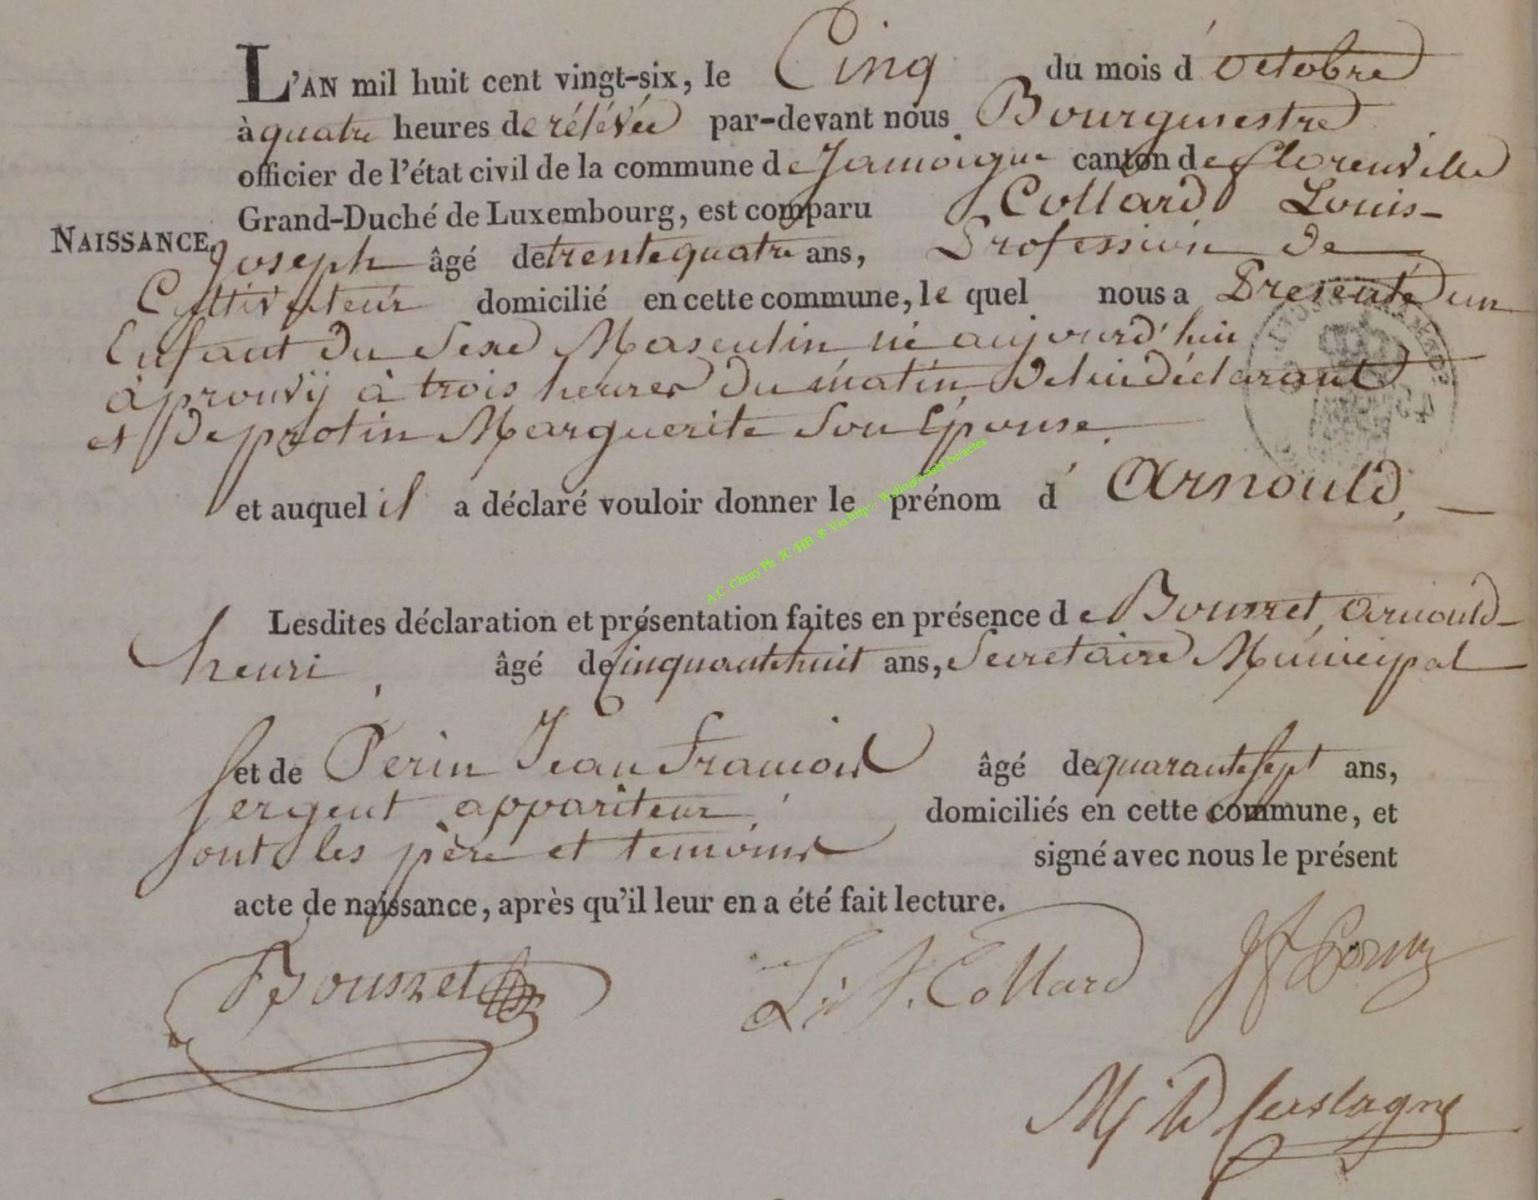 L'AN mil huit cent vingt-six, le Cinq du mois d'octobre
à quatre heures de rélévée par-devant nous Bourgmestre
officier de l'état civil de la commune de Jamoigne canton de florenville
Grand-Duché de Luxembourg, est comparu Collard Louis-
NAISSANCE.
Joseph âgé de trente quatre ans, Profession de
Cultivateur domicilié en cette commune, le quel nous a Presenté un
Enfant du Sexe Masculin né aujourd'hui
à prouvÿ à trois heures du matin, de lui déclarant
et de protin Marguerite Son Epouse.
et auquel il a déclaré vouloir donner le prénom d'Arnould,
A.C. Chiny Ph JC/HB & Via http://
Lesdites déclaration et présentation faites en présence de Bousret, Arnould-
henri, âgé de Cinquante huit ans, Secretaire Municipal
et de Perin Jean francois âgé de quarante sept ans,
Sergent appariteur, domiciliés en cette commune, et
sont les père et temoins signé avec nous le présent
acte de naissance, après qu'il leur en a été fait lecture.
Bousret L. J. Collard